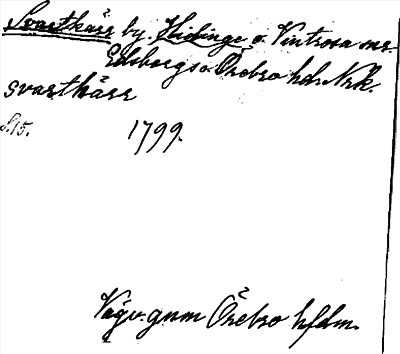 Svartkärr by. Hidinge o. Vintrosa snr.
Edsbergs o Örebro hdr Nrk.
svartkärr
S.15. 1799.
Vägv. gnm Örebro hfdm.